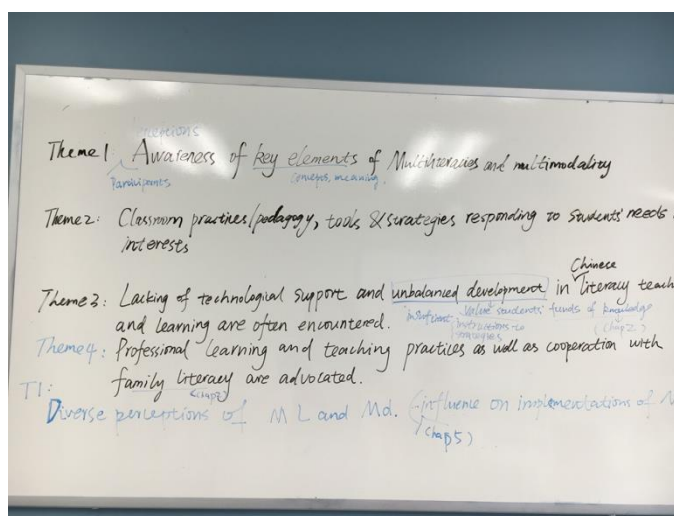 Theme1 Awareness of key elements of Multiliteracies and multimodality
Participants concepts, meaning
Theme2: Classroom practices/pedagogy, tools & strategies responding to students' needs
interests
Chinese
Theme3: Lacking of technological support and unbalanced development in literacy teach
and learning are often encountered. value students' funds of knowledge
instructions to (chap2)
strategies
Theme4: Professional learning and teaching practices as well as cooperation with
family literacy are advocated.
T1: (chap2)
Diverse perceptions of ML and Md. (influence on implementations of M
chap5)